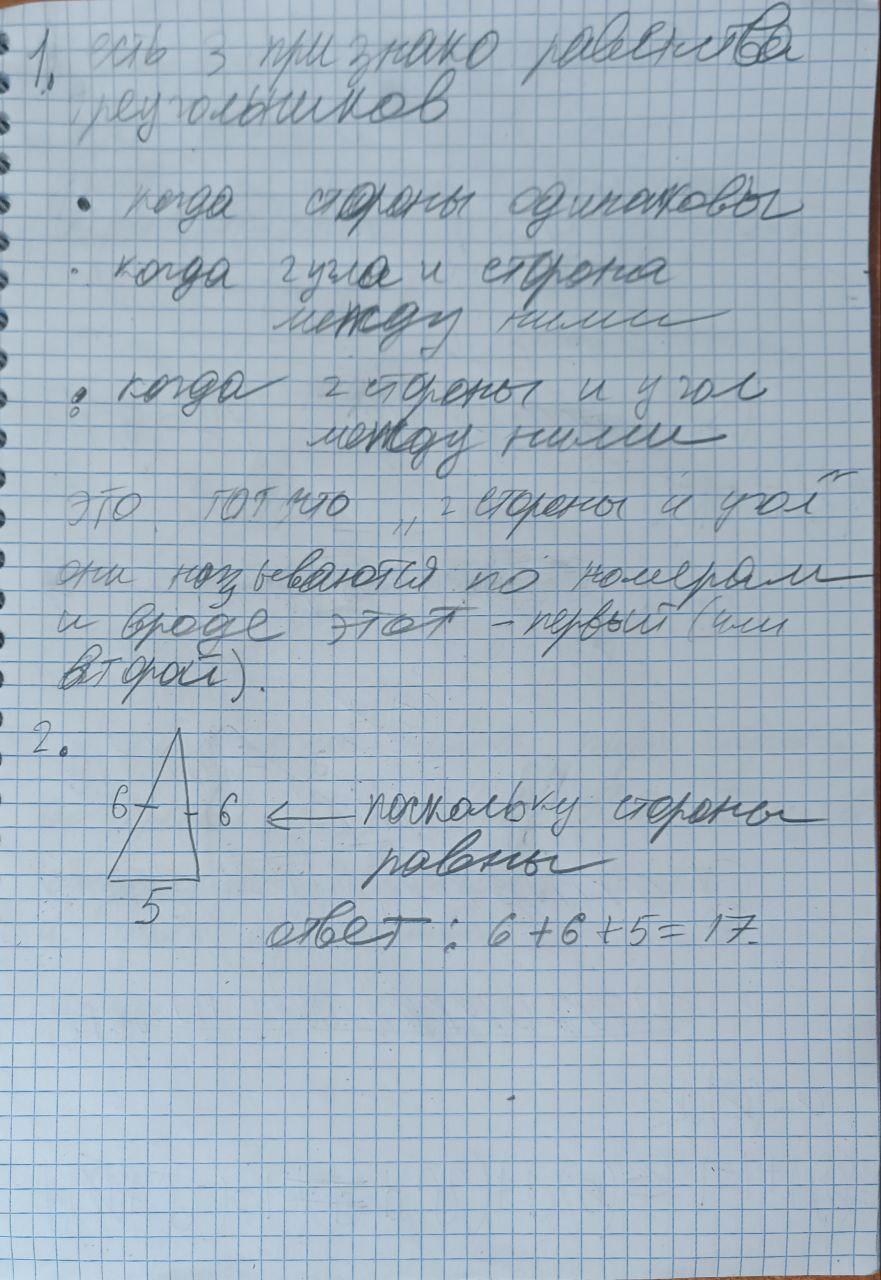 1. есть 3 признако равенства
треугольников
• когда стороны одинаковы
• когда 2 угла и сторона
между ними
• когда 2 стороны и угол
между ними
это тот что „2 стороны и угол"
они называются по номерам
и вроде этот - первый (или
второй).
2.
6 6 ← поскольку стороны
равны
5
ответ: 6+6+5=17.